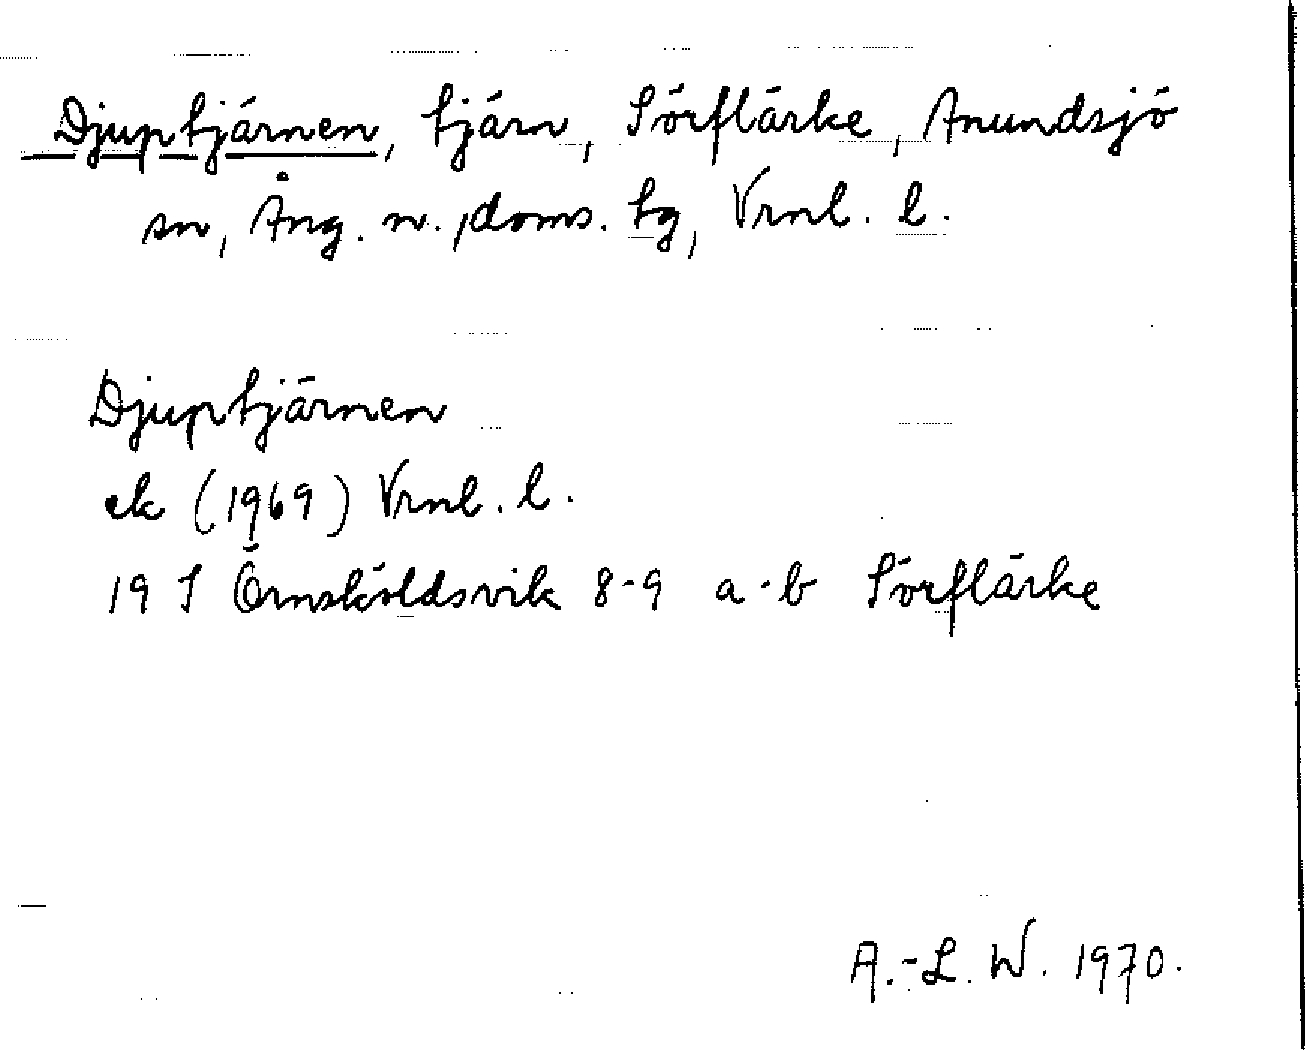 Djuptjärnen, tjärn, Sörflärke, Anundsjö
sn, Ång. n., doms. tg, Vrnl. l.
Djuptjärnen
ek (1969) Vrnl. l.
19 I Örnsköldsvik 8-9 a-b Sörflärke
A.-L. W. 1970.